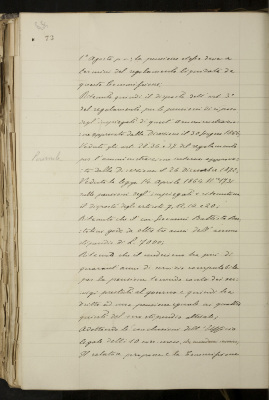 73
1° Agosto p. p. la pensione stessa deve a
termini del regolamento liquidata da
questa Commissione,
Ritenuto quindi il disposto dell'art. 3°
del regolamento per le pensioni di
degli impiegati di quest'amministrazio
ne approvato dalla Direzione il 30 giugno
Veduti gli art. 25. 26 e 27. del regolamento
per l'amministrazione interna approva
to dalla Direzione il 26 dicembre 1872,
Veduta la legge 14 Aprile 1864 N° 1731
sulle pensioni degli impiegati e ritenuto
il disposto degli articoli
Ritenuto che il Giovanni Battista
gode da oltre tre anni dell'annuo
stipendio di L. 7000;
Ritenuto che il medesimo ha più di
quarant'anni di servizio computabile
per la pensione tenendo conto dei ser
vigi prestati al governo e quindi ha
diritto ad una pensione uguale ai quattro
quinti del suo stipendio attuale;
Adottando le conclusioni dell'Ufficio
legale delli 10 corr.
Il relatore propone la Commissione